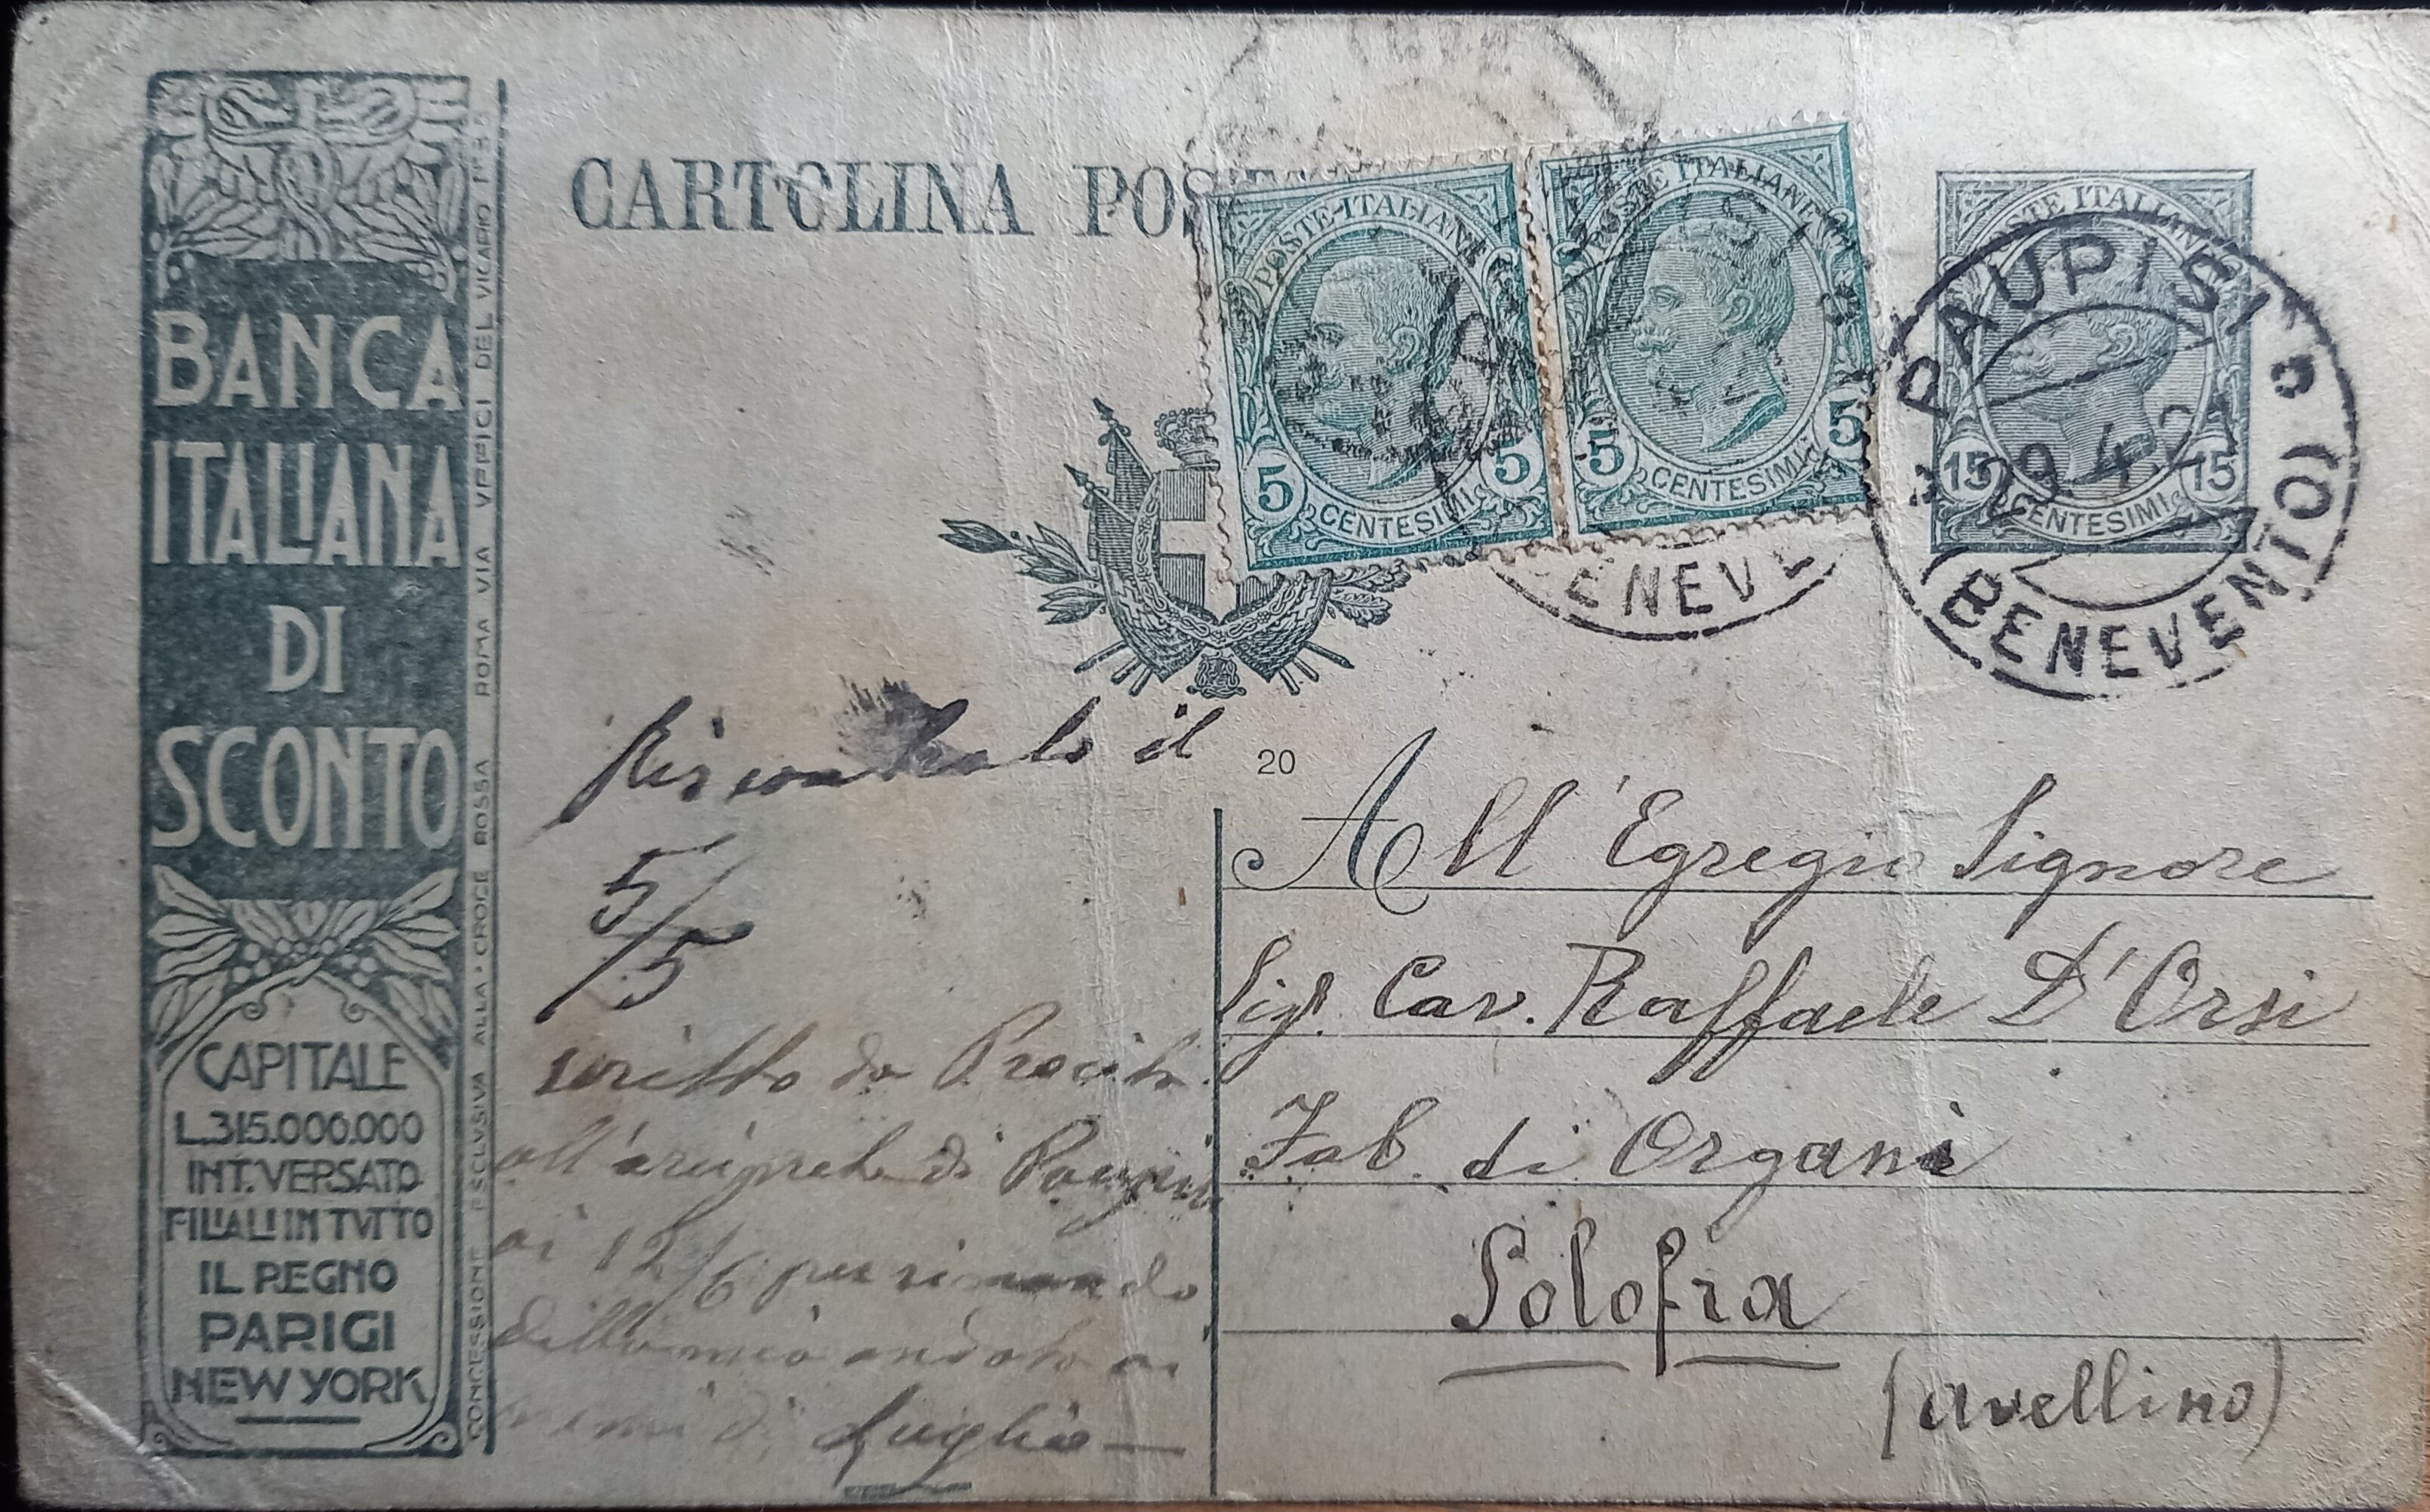 BANCA
ITALIANA
DI
SCONTO
CAPITALE
L.315.000.000
INT.VERSATO
FILIALI IN TVTTO
IL REGNO
PARIGI
NEW YORK
CONCESSIONE ESCLVSIVA ALLA • CROCE ROSSA ROMA VIA VFFICI DEL VICARIO
CARTOLINA POS
POSTE ITALIANE
5 5
CENTESIMI
POSTE ITALIANE
5 5
CENTESIMI
ENEV
STE ITALIANE
15 15
CENTESIMI
PAUPISI
29.4.21
(BENEVENTO)
Riscontrato il
5/5
scritto da
all' di
ai 12/6 per
ai
di Luglio
20
All' Egregio Signore
Sigr. Cav. Raffaele D'Orsi
Fab. di Organi
Solofra
(avellino)